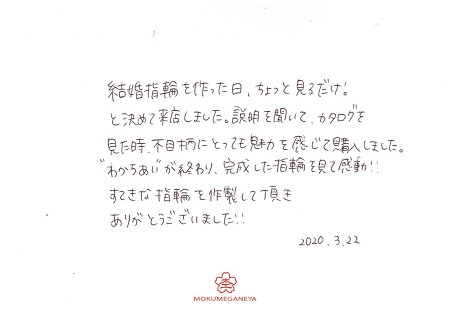 結婚指輪を作った日、ちょっと見るだけ!
と決めて来店しました。説明を聞いて、カタログを
見た時、木目柄にとっても魅力を感じて購入しました。
"わかちあい"が終わり、完成した指輪を見て感動!!
すてきな指輪を作製して頂き
ありがとうございました!!
2020.3.22
MOKUMEGANEYA